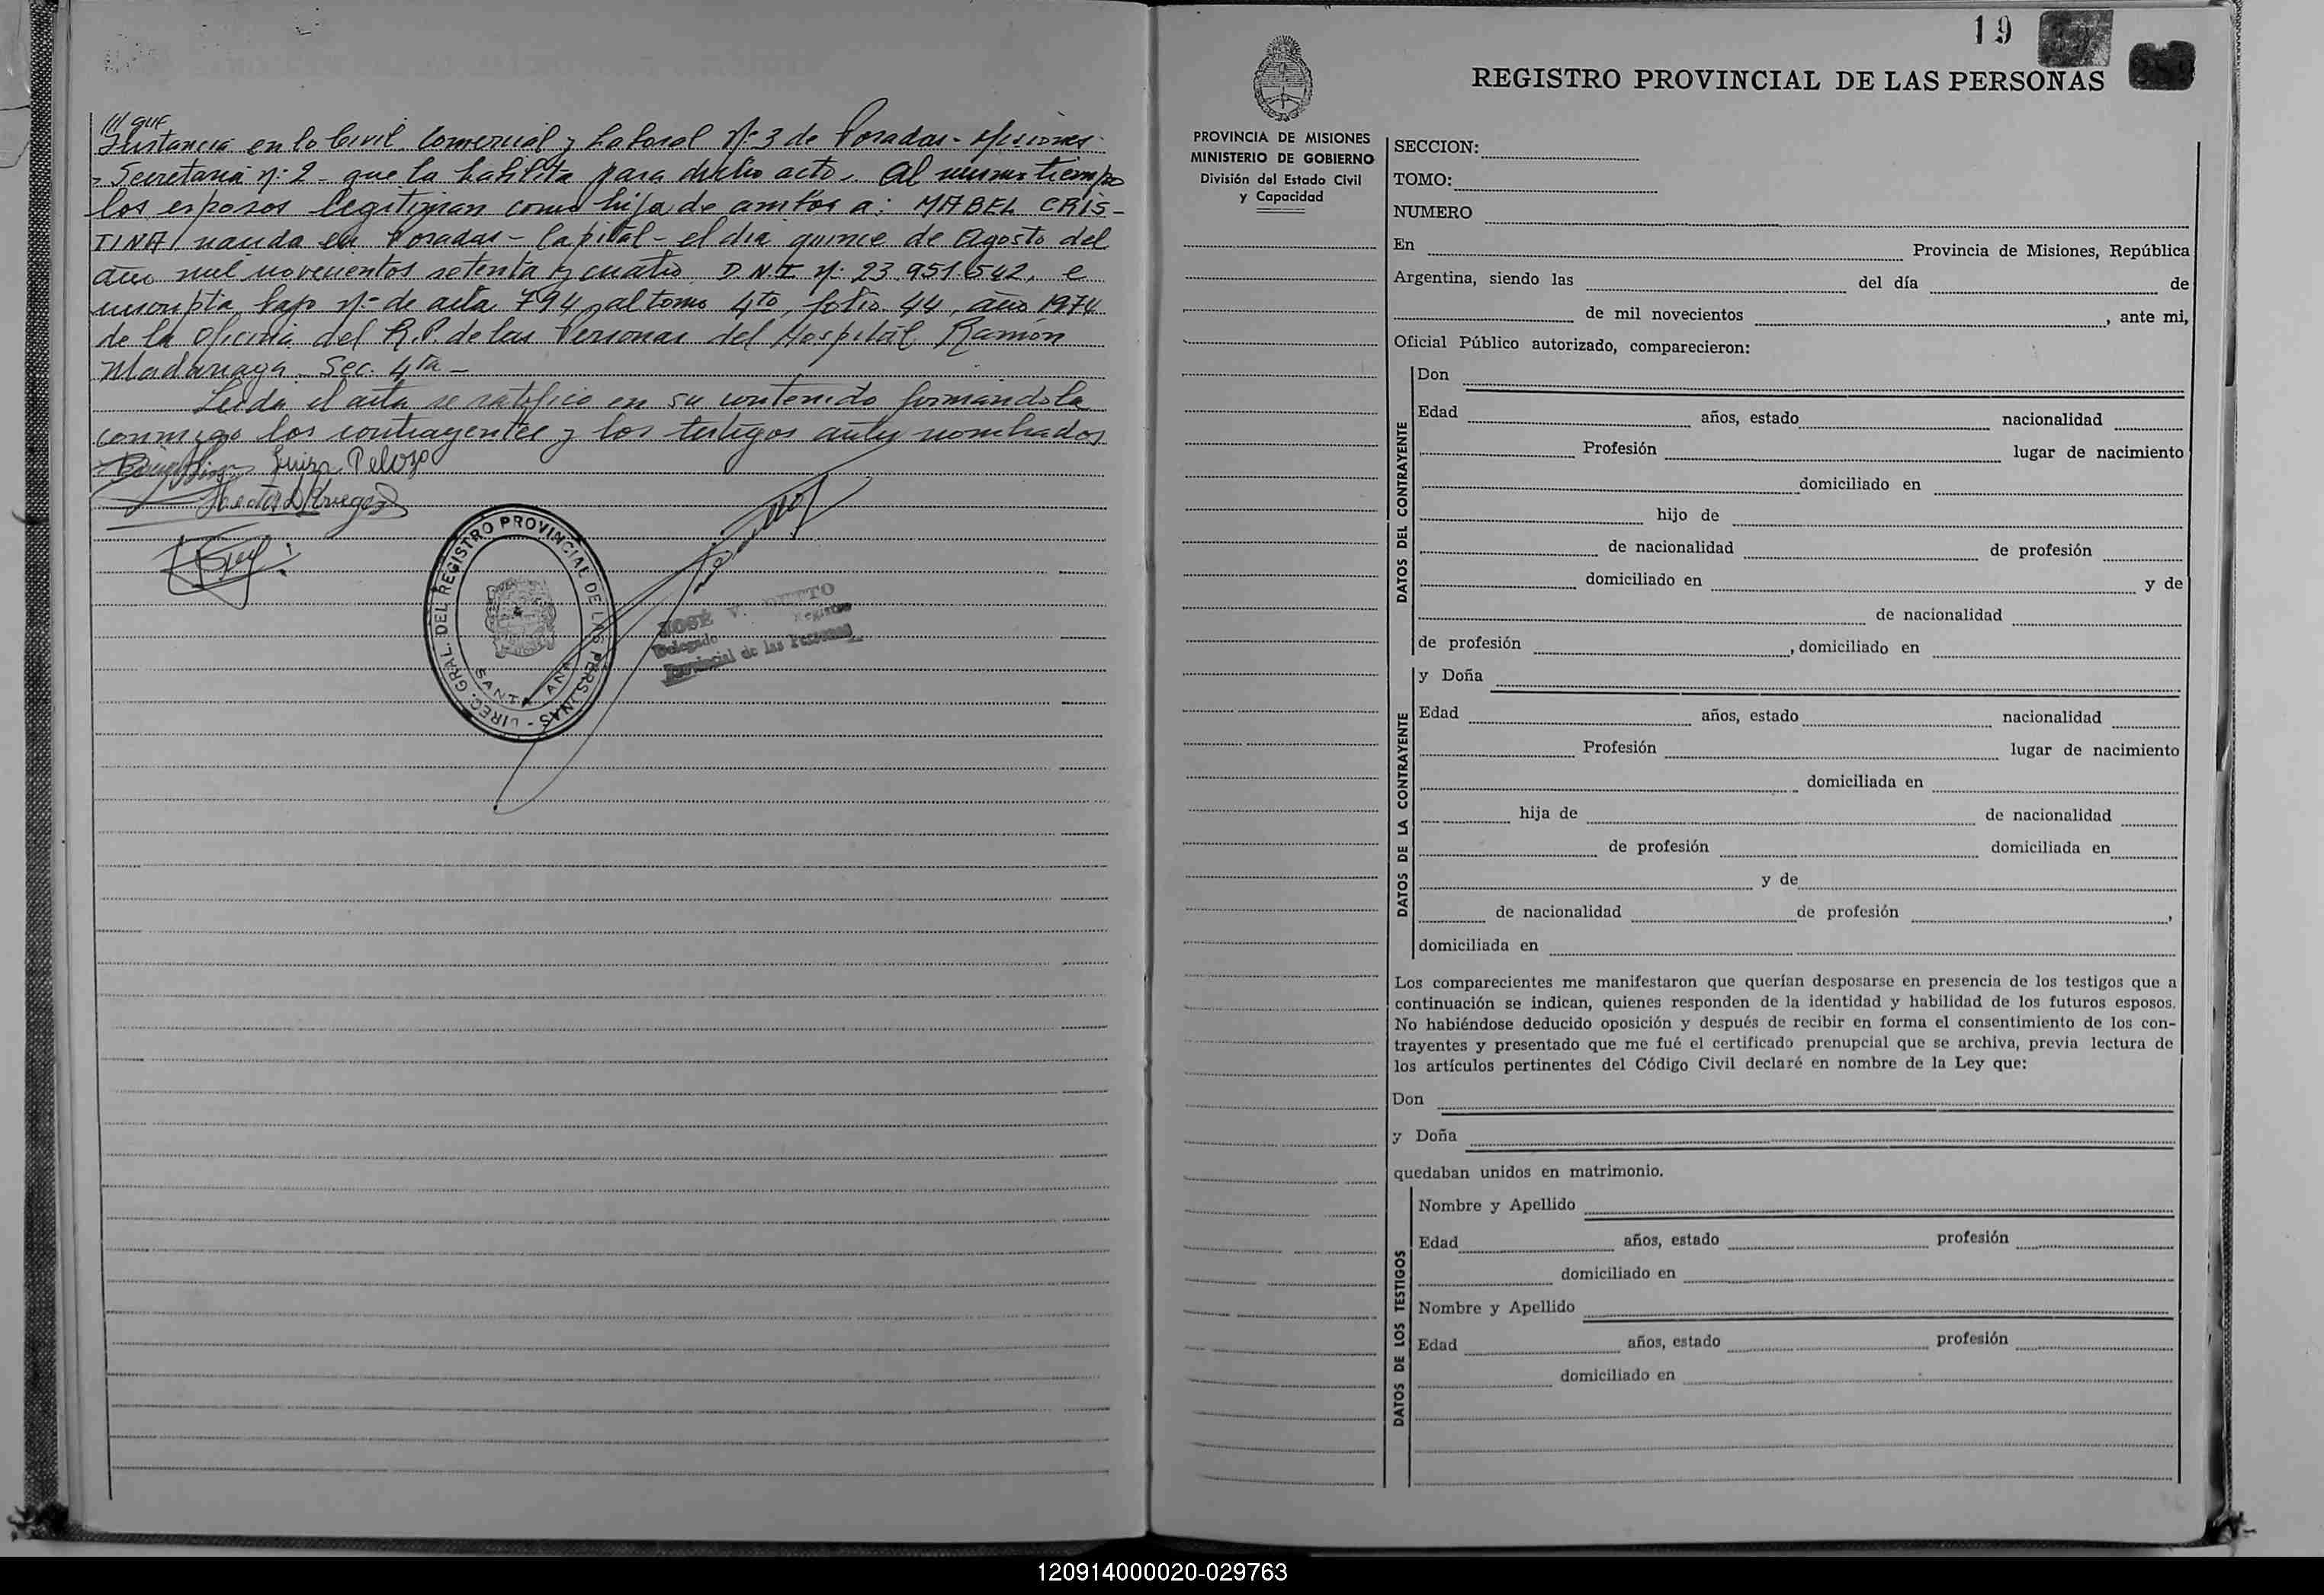 /// que
Instancia en lo Civil Comercial y Laboral Nº 3 de Posadas - Misiones
- Secretaria nº 2 - que la habilita para dicho acto. Al mismo tiempo
los esposos legitiman como hija de ambos a: MABEL CRIS-
TINA nacida en Posadas - Capital - el día quince de Agosto del
año mil novecientos setenta y cuatro D.N.I. Nº 23.951.542, e
inscripta bajo nº de acta 794, al tomo 4to, folio 44, año 1974
de la Oficina del R.P. de las Personas del Hospital Ramón
Madariaga. Sec. 4ta -
Leída el acta se ratifico en su contenido firmandola
conmigo los contrayentes y los testigos antes nombrados
Luiza Peloso
Hector D Krueger
DIREC. GRAL. DEL REGISTRO PROVINCIAL DE LAS PERSONAS -
SANTA ANA
JOSÉ V.
Delegado Registro
Provincial de las Personas
19
REGISTRO PROVINCIAL DE LAS PERSONAS
PROVINCIA DE MISIONES
MINISTERIO DE GOBIERNO
División del Estado Civil
y Capacidad
SECCION:
TOMO:
NUMERO
En Provincia de Misiones, República
Argentina, siendo las del día de
de mil novecientos , ante mi,
Oficial Público autorizado, comparecieron:
DATOS DEL CONTRAYENTE
Don
Edad años, estado nacionalidad
Profesión lugar de nacimiento
domiciliado en
hijo de
de nacionalidad de profesión
domiciliado en y de
de nacionalidad
de profesión , domiciliado en
DATOS DE LA CONTRAYENTE
y Doña
Edad años, estado nacionalidad
Profesión lugar de nacimiento
domiciliada en
hija de de nacionalidad
de profesión domiciliada en
y de
de nacionalidad de profesión ,
domiciliada en
Los comparecientes me manifestaron que querían desposarse en presencia de los testigos que a
continuación se indican, quienes responden de la identidad y habilidad de los futuros esposos.
No habiéndose deducido oposición y después de recibir en forma el consentimiento de los con-
trayentes y presentado que me fué el certificado prenupcial que se archiva, previa lectura de
los artículos pertinentes del Código Civil declaré en nombre de la Ley que:
Don
y Doña
quedaban unidos en matrimonio.
DATOS DE LOS TESTIGOS
Nombre y Apellido
Edad años, estado profesión
domiciliado en
Nombre y Apellido
Edad años, estado profesión
domiciliado en
120914000020-029763